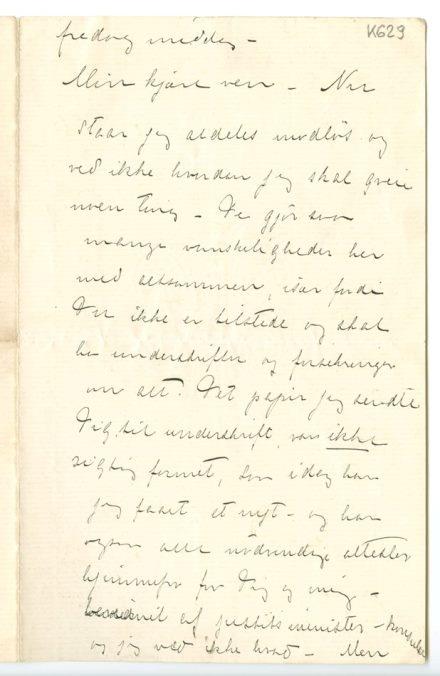 K629
fredag middag –
Min kjære ven – Nu
staar jeg aldeles modløs og
ved ikke hvordan jeg skal greie
noen ting – De gjør saa
mange vanskeligheder her
med altsammen, især fordi
Du ikke er tilstede og skal
ha underskrifter og forsekringer
om alt. Det papir jeg sendte
Dig til underskrift var ikke
rigtig formet, saa idag har
jeg faaet et nyt – og har
ogsaa alle nødvendige attester
hjemmefra for Dig og mig –
af justitsminister –
og jeg ved ikke hvad – Men